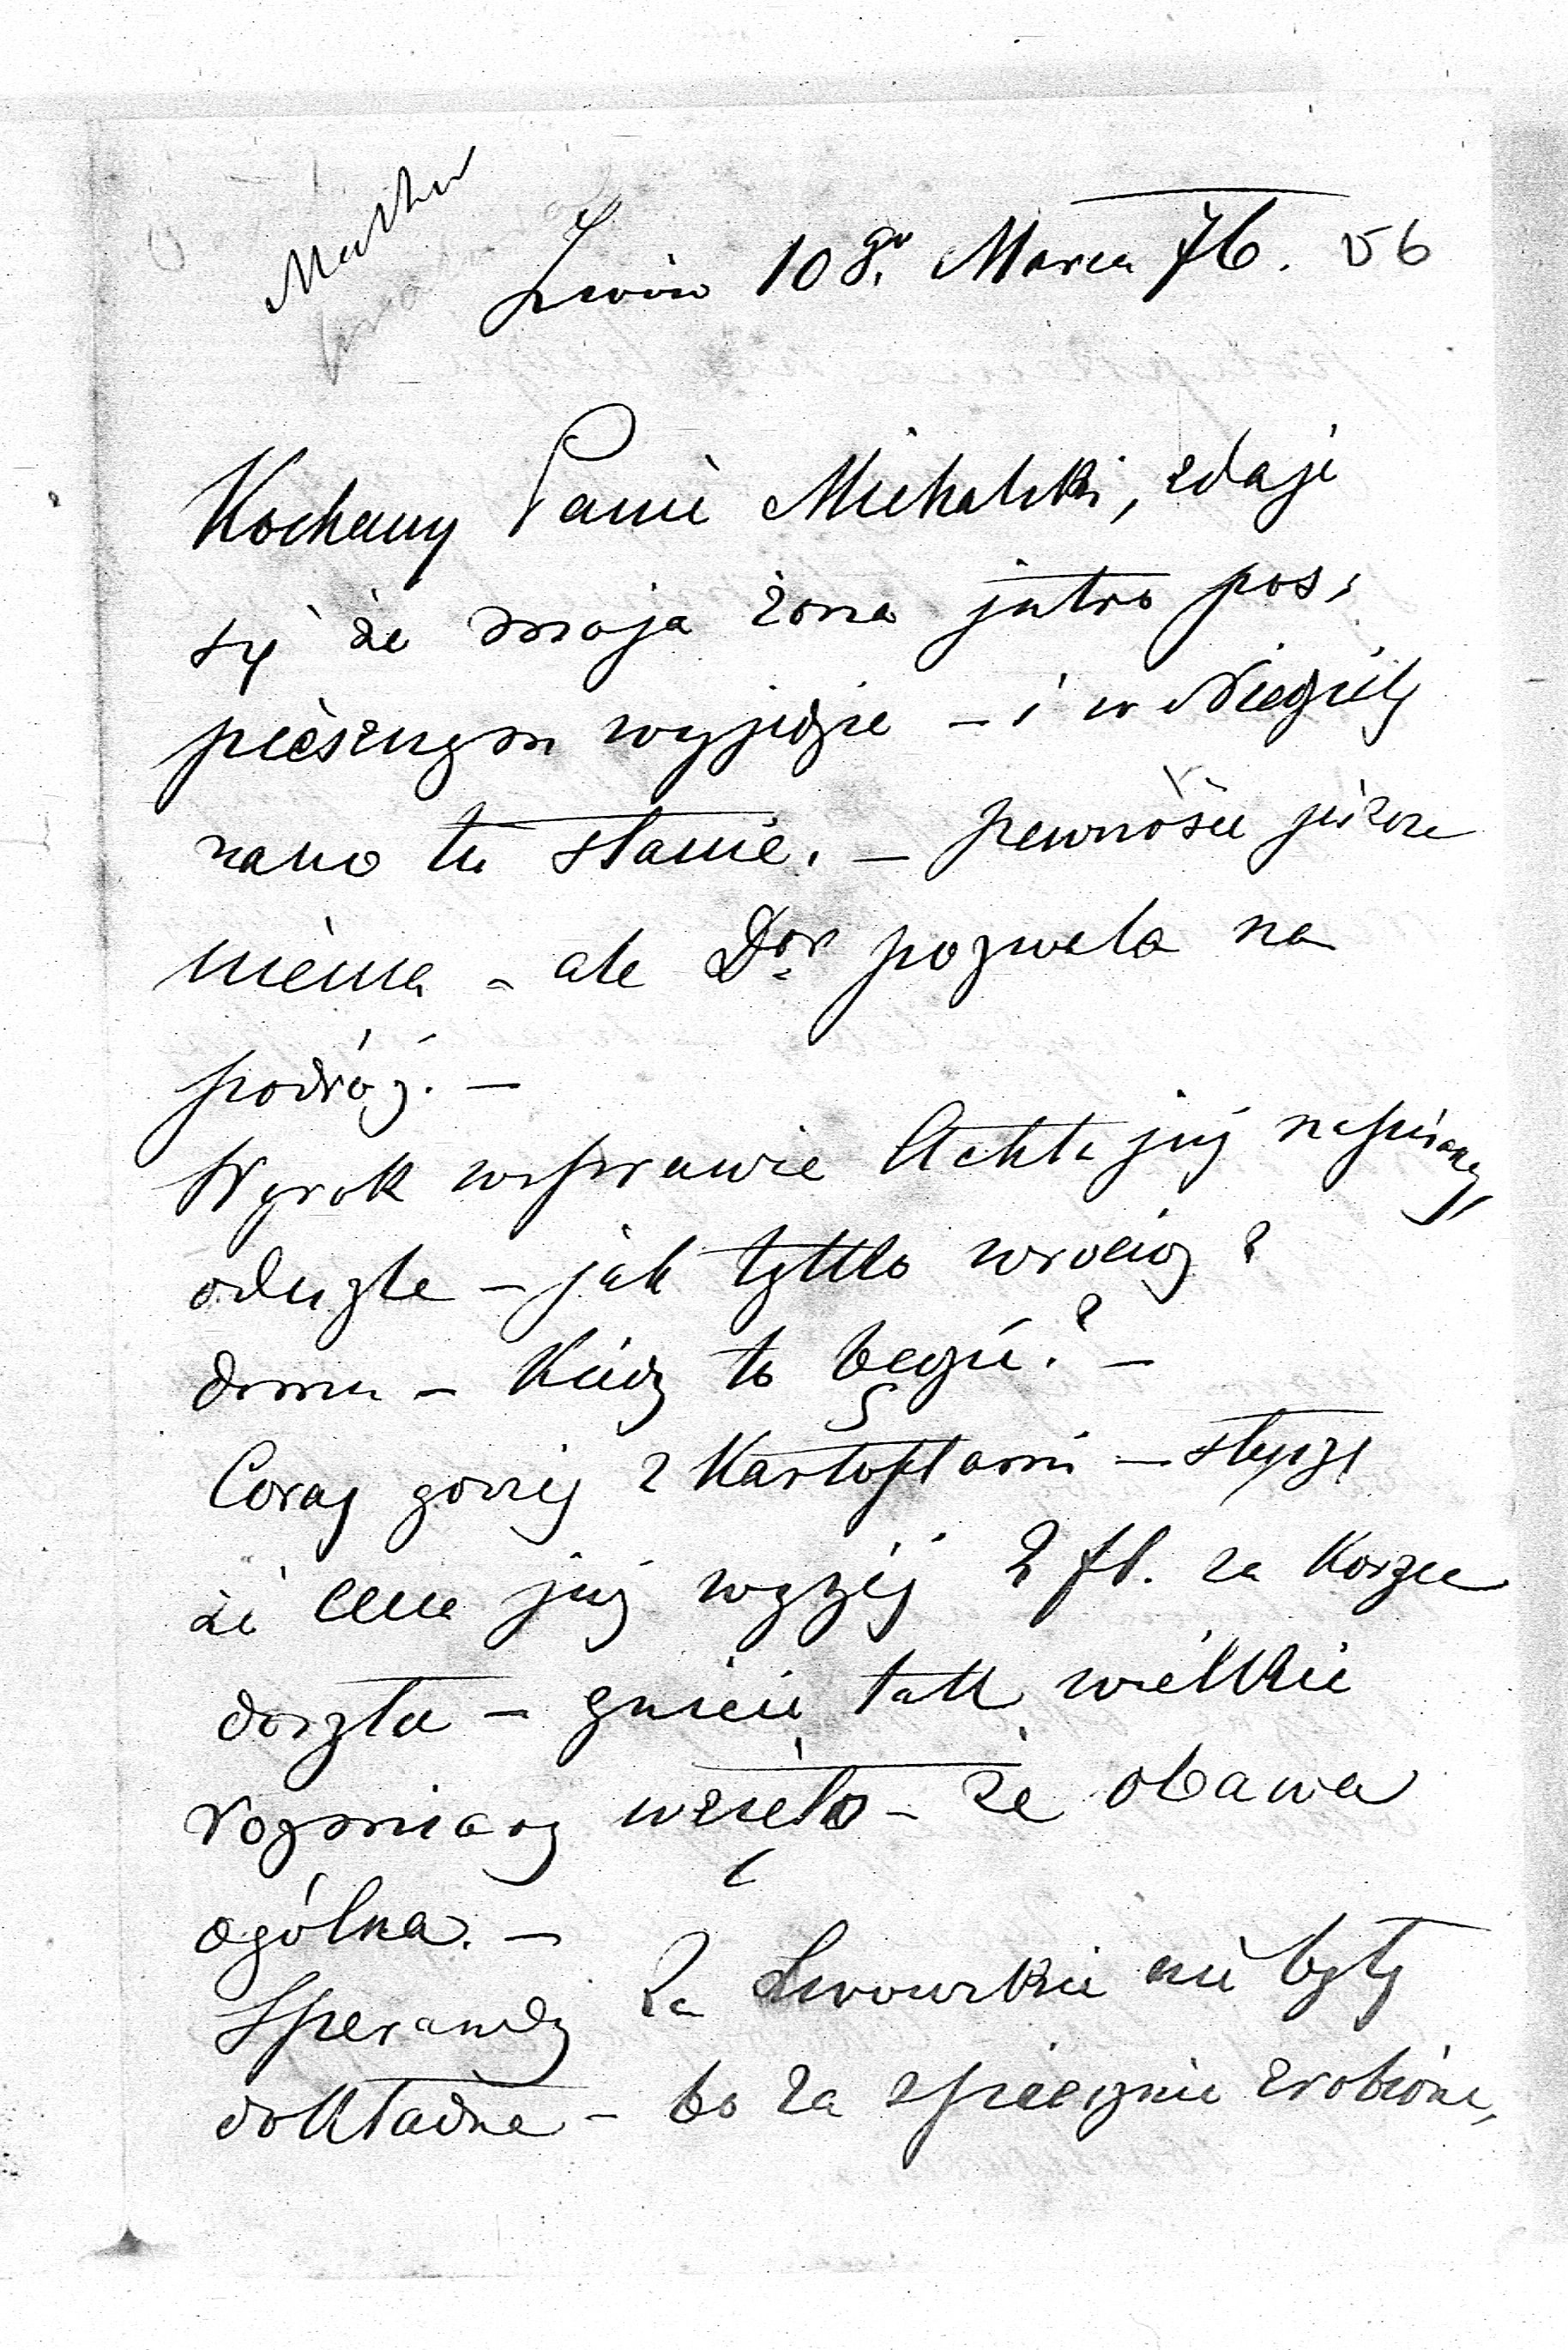 Lwów 10go Marca 76. 56
Kochany Panie Michalski, zdaje
się że moja żona jutro pos,
piesznym wyjedzie – i w Niedzielę
rano tu stanie. – pewności jeszcze
niéma – ale Dor pozwala na
podróż. –
Wyrok w sprawie Achta już napisany,
odeszle – jak tylko wrócię z
domu – Kiedy to będzie? –
Coraz gorzej z Kartoflami – słyszę
że cena już wyżej 2 fl. za Korzec
doszła – gnicie tak wielkie
rozmiary wzięło – że obawa
ogólna. –
Sperandy za Lwowskie nie były
dokładne – bo za spiesznie zrobione,